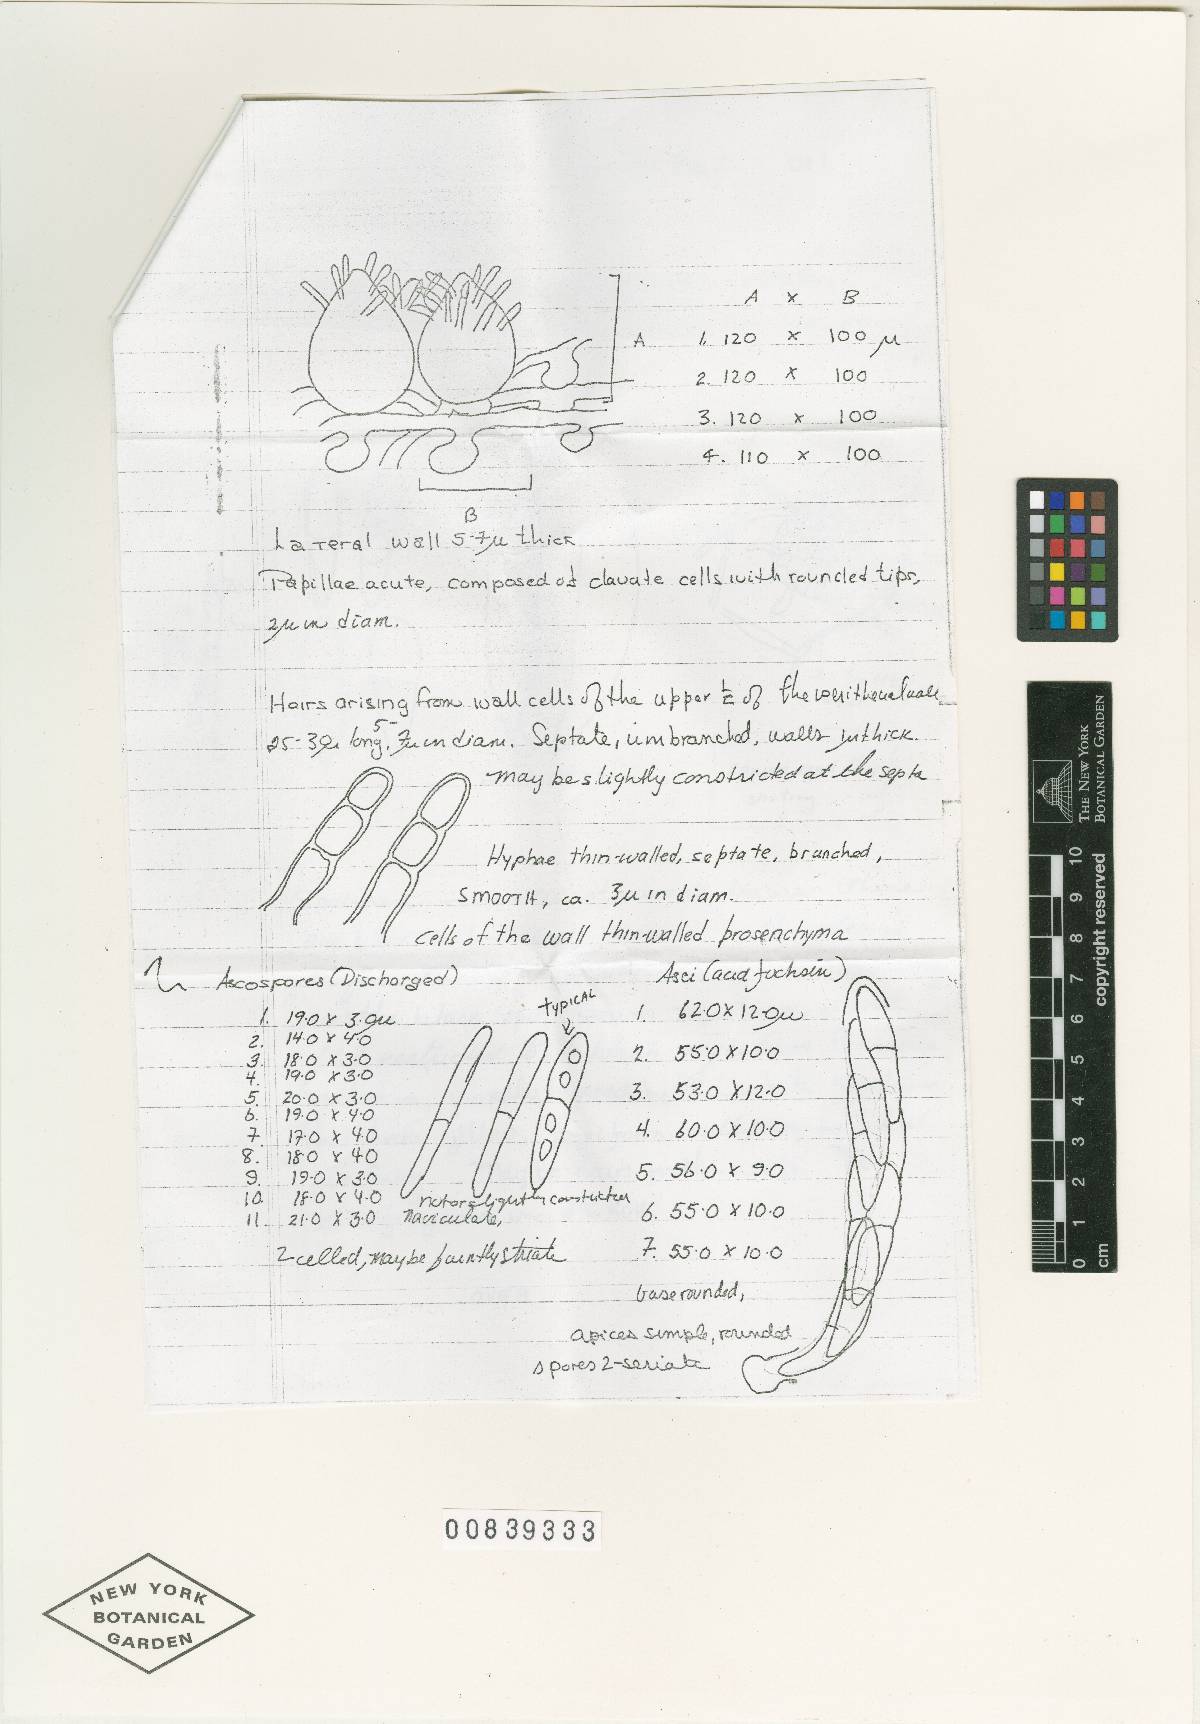 A x B
A 1. 120 x 100 µ
2. 120 x 100
3. 120 x 100
4. 110 x 100
B
Lateral wall 5-7µ thick
Papillae acute, composed of clavate cells with rounded tips,
2µ in diam.
Hairs arising from wall cells of the upper ½ of the
long, 5- µ in diam. Septate, unbranched, walls thick.
may be slightly constricted at the septa
Hyphae thin-walled, septate, branched,
SMOOTH, ca. 3µ in diam.
cells of the wall thin-walled prosenchyma
Ascospores (Discharged)
TYPICAL
1. 19.0 x 3.0µ
2. 14.0 x 4.0
3. 18.0 x 3.0
4. 19.0 x 3.0
5. 20.0 x 3.0
6. 19.0 x 4.0
7. 17.0 x 4.0
8. 18.0 x 4.0
9. 19.0 x 3.0
10. 18.0 x 4.0
11. 21.0 x 3.0
not or slightly constricted
naviculate,
2-celled, may be faintly striate
Asci (acid fuchsin)
1. 62.0 x 12.0µ
2. 55.0 x 10.0
3. 53.0 x 12.0
4. 60.0 x 10.0
5. 56.0 x 9.0
6. 55.0 x 10.0
7. 55.0 x 10.0
base rounded,
apices simple, rounded
spores 2-seriate
00839333
NEW YORK
BOTANICAL
GARDEN
THE NEW YORK
BOTANICAL GARDEN
copyright reserved
0 1 2 3 4 5 6 7 8 9 10
cm